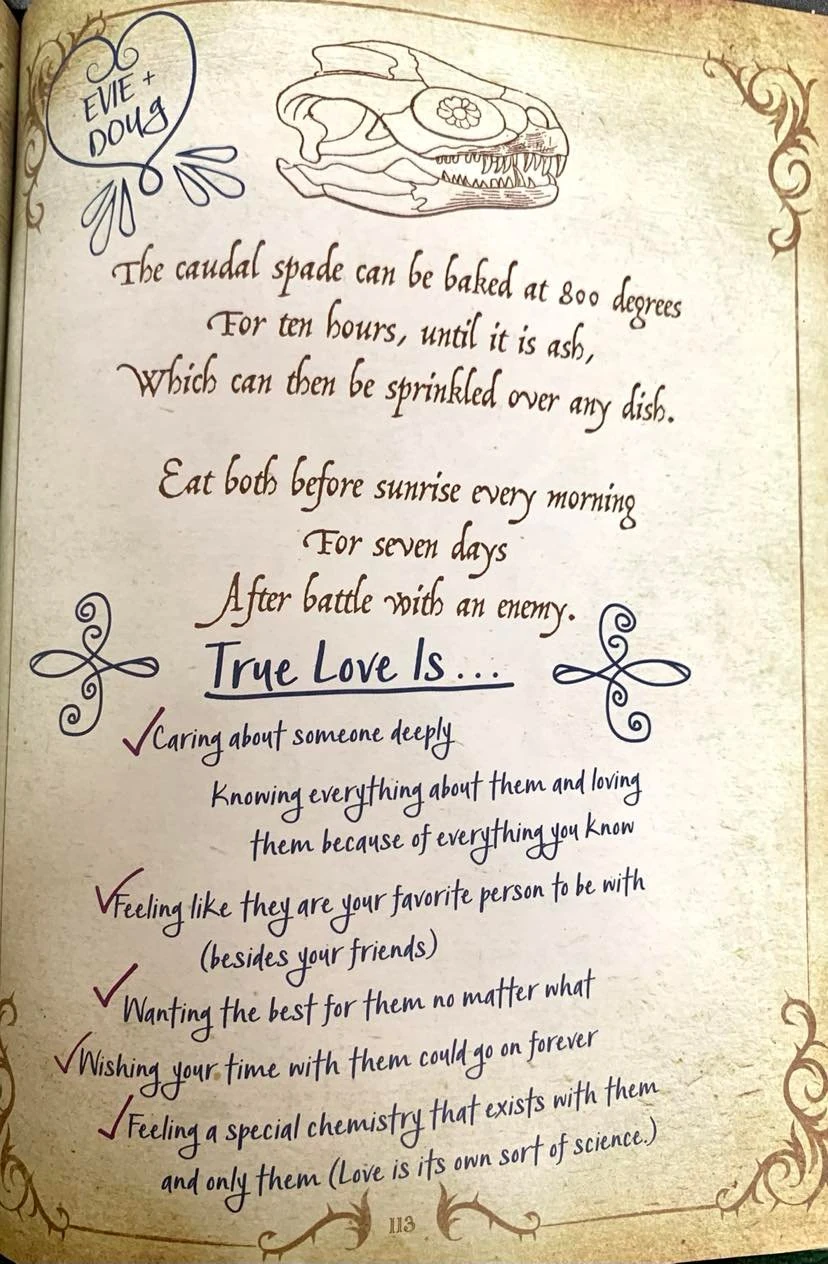 EVIE +
DOUG
The caudal spade can be baked at 800 degrees
For ten hours, until it is ash,
Which can then be sprinkled over any dish.
Eat both before sunrise every morning
For seven days
After battle with an enemy.
True Love Is...
✓Caring about someone deeply
Knowing everything about them and loving
them because of everything you know
✓Feeling like they are your favorite person to be with
(besides your friends)
✓Wanting the best for them no matter what
✓Wishing your time with them could go on forever
✓Feeling a special chemistry that exists with them
and only them (Love is its own sort of science.)
113